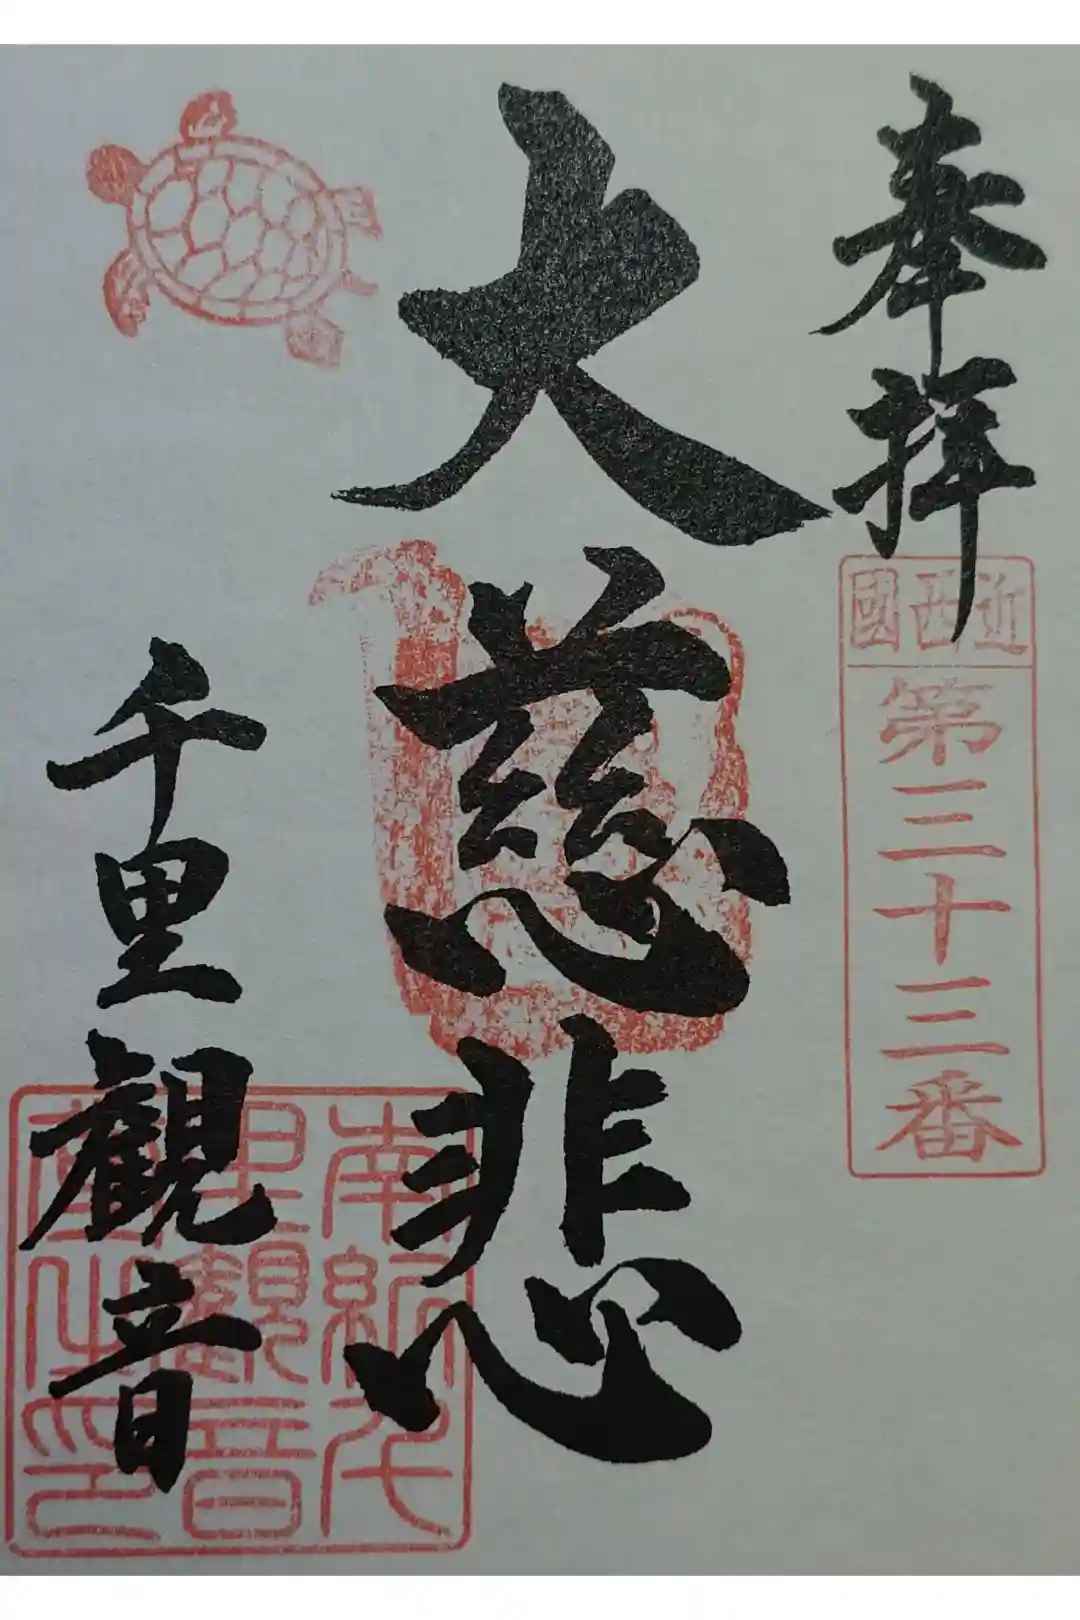 奉拝
近西國
第三十三番
大慈悲
千里観音
南紀千
里観音